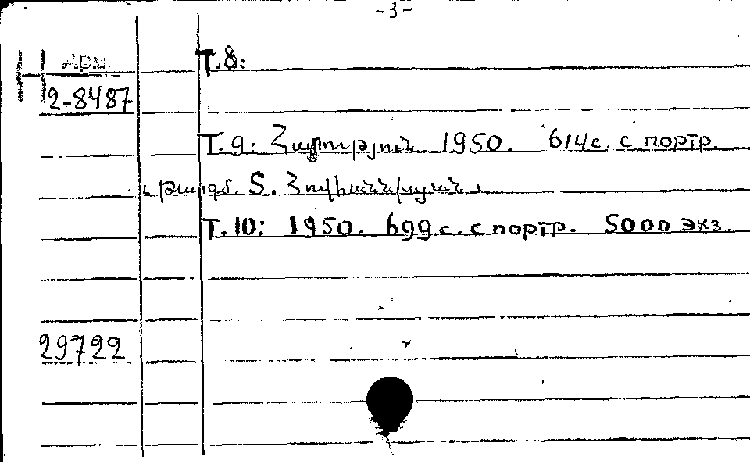 -3-
Арм
2-8487
Т.8:
Т.9: Հարություն 1950. 614с. с портр.
թարգմ. Տ. Հովհաննիսյան.
Т.10: 1950. 699с. с портр. 5000 экз.
29722